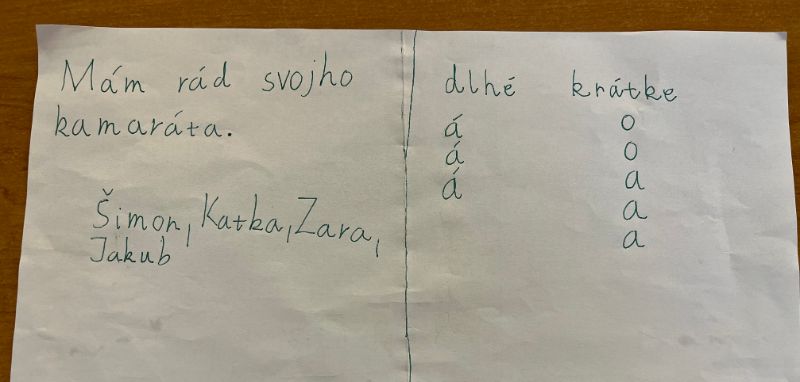 Mám rád svojho
kamaráta.
Šimon, Katka, Zara,
Jakub
dlhé krátke
á o
á o
á a
a
a